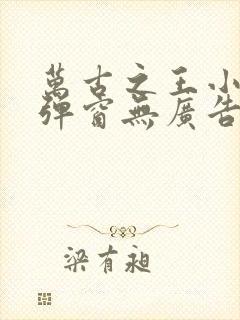 萬古之王小
彈窗無廣告
梁有昶